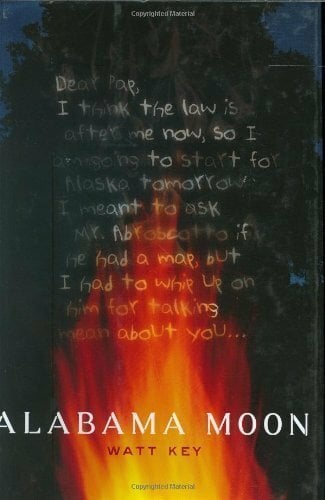 Dear Pap,
I think the law is
after me now, so I
am going to start for
Alaska tomorrow
I meant to ask
Mr. Abroscotto if
he had a map, but
I had to whip up on
him for talking
mean about you...
ALABAMA MOON
WATT KEY